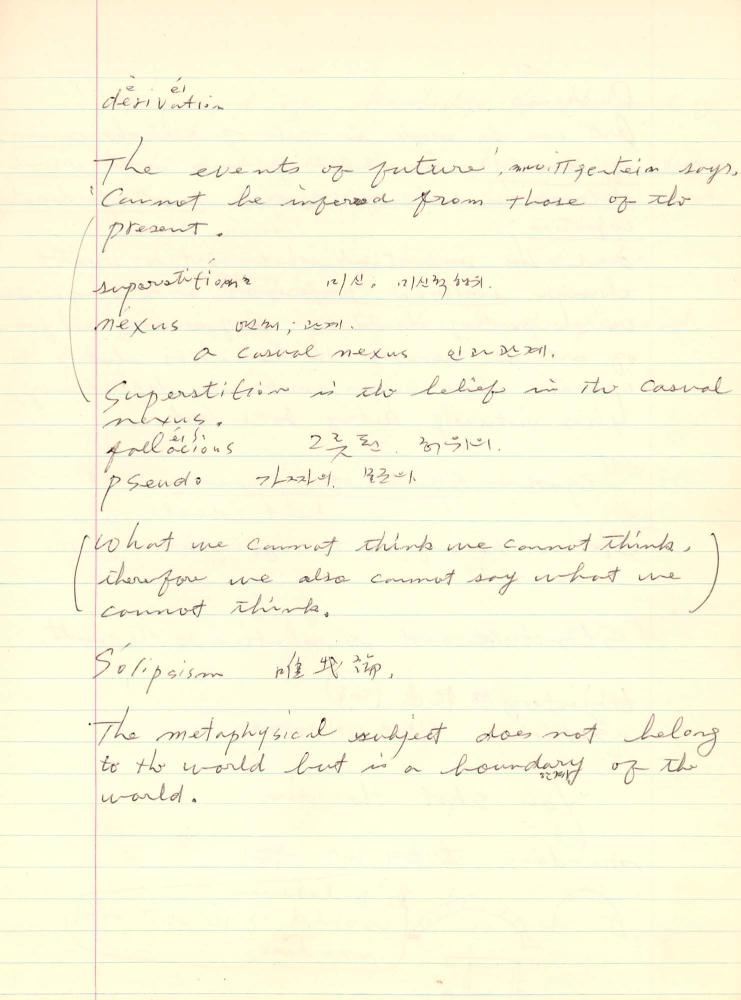 è éi
derivation
The events of future', Wittgenstein says,
'Cannot be infered from those of the
present.
superstition 미신, 미신적 행위.
néxus 연쇄; 관계.
a casual nexus 인과관계.
Superstition is the belief in the casual
nexus.
éi ʃ
fallacious 그릇된. 허위의.
pseudo 가짜의.
(What we cannot think we cannot think,
therefore we also cannot say what we
cannot think.)
Sólipsism 唯我論,
The metaphysical subject does not belong
to the world but is a boundary of the
한계
world.